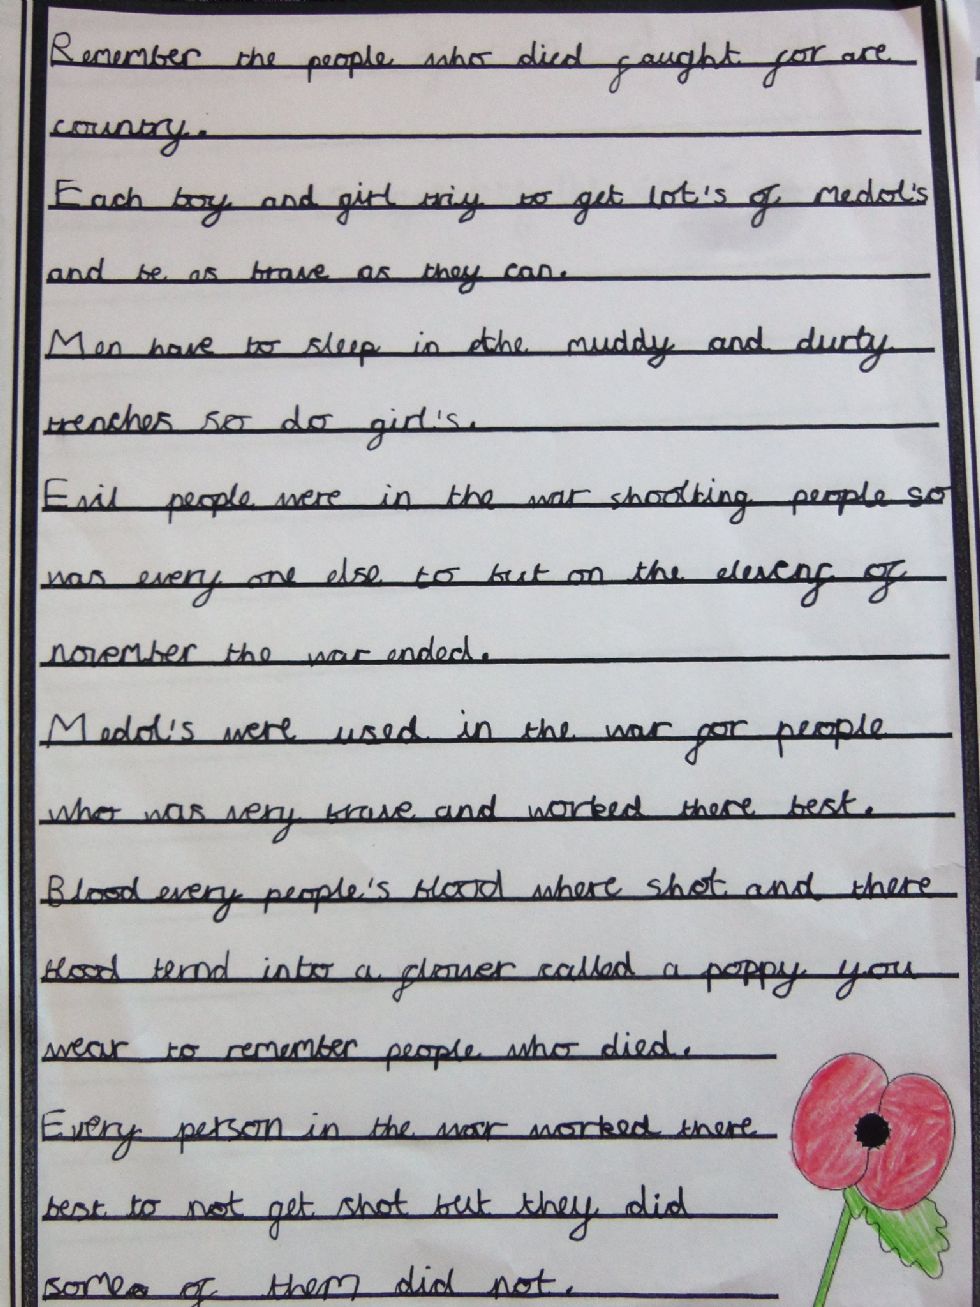 Remember the people who died faught for are
country.
Each boy and girl triy to get lot's of Medol's
and be as brave as they can.
Men have to sleep in the muddy and durty
trenches so do girl's.
Evil people were in the war shootting people so
was every one else to but on the of
november the war ended.
Medol's were used in the war for people
who was very brave and worked there best.
Blood every people's blood where shot and there
blood ternd into a flower called a poppy you
wear to remember people who died.
Every person in the war worked there
best to not get shot but they did
some of them did not.